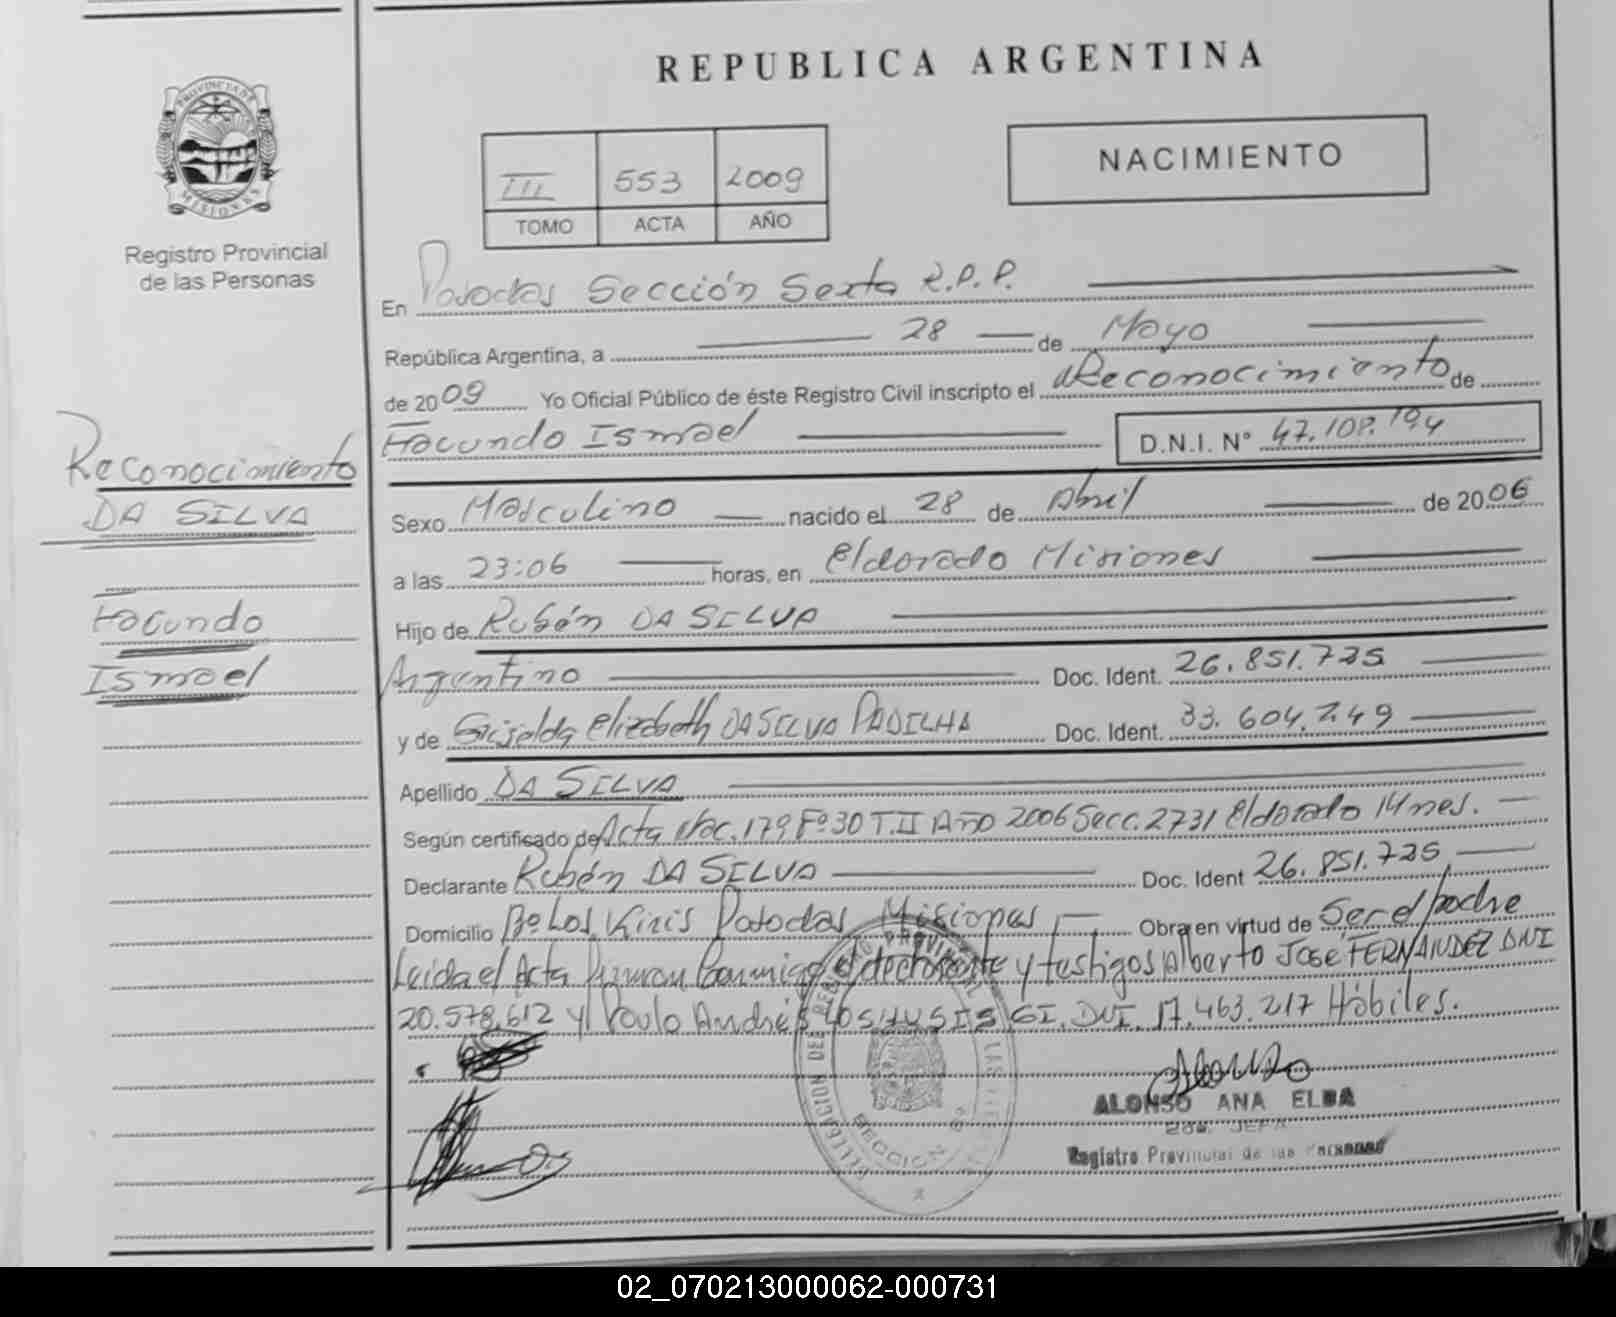 REPUBLICA ARGENTINA
PROVINCIA DE
MISIONES
Registro Provincial
de las Personas
III 553 2009
TOMO ACTA AÑO
NACIMIENTO
En Posadas Sección Sexta R.P.P.
República Argentina, a 28 de Mayo
de 2009 Yo Oficial Público de éste Registro Civil inscripto el Reconocimiento de
Facundo Ismael D.N.I. Nº 47.108.194
Reconocimiento
DA SILVA
Facundo
Ismael
Sexo Masculino nacido el 28 de Abril de 2006
a las 23:06 horas, en Eldorado Misiones
Hijo de Rubén DA SILVA
Argentino Doc. Ident. 26.851.735
y de Griselda Elizabeth DA SILVA PADILHA Doc. Ident. 33.604.249
Apellido DA SILVA
Según certificado de Acta Nac. 179 Fº 30 T.II Año 2006 Secc. 2731 Eldorado Mnes.
Declarante Rubén DA SILVA Doc. Ident 26.851.735
Domicilio Bº Los Kiris Posadas Misiones Obra en virtud de Ser el padre
Leida el Acta firman Conmigo el declarante y testigos Alberto José FERNANDEZ DNI
20.578.612 y Paulo Andrés DNI. 17.463.217 Hábiles.
DELEGACION DEL REGISTRO PROVINCIAL DE LAS
SECCION 6º
ALONSO ANA ELBA
2da. JEFA
Registro Provincial de las Personas
02_070213000062-000731